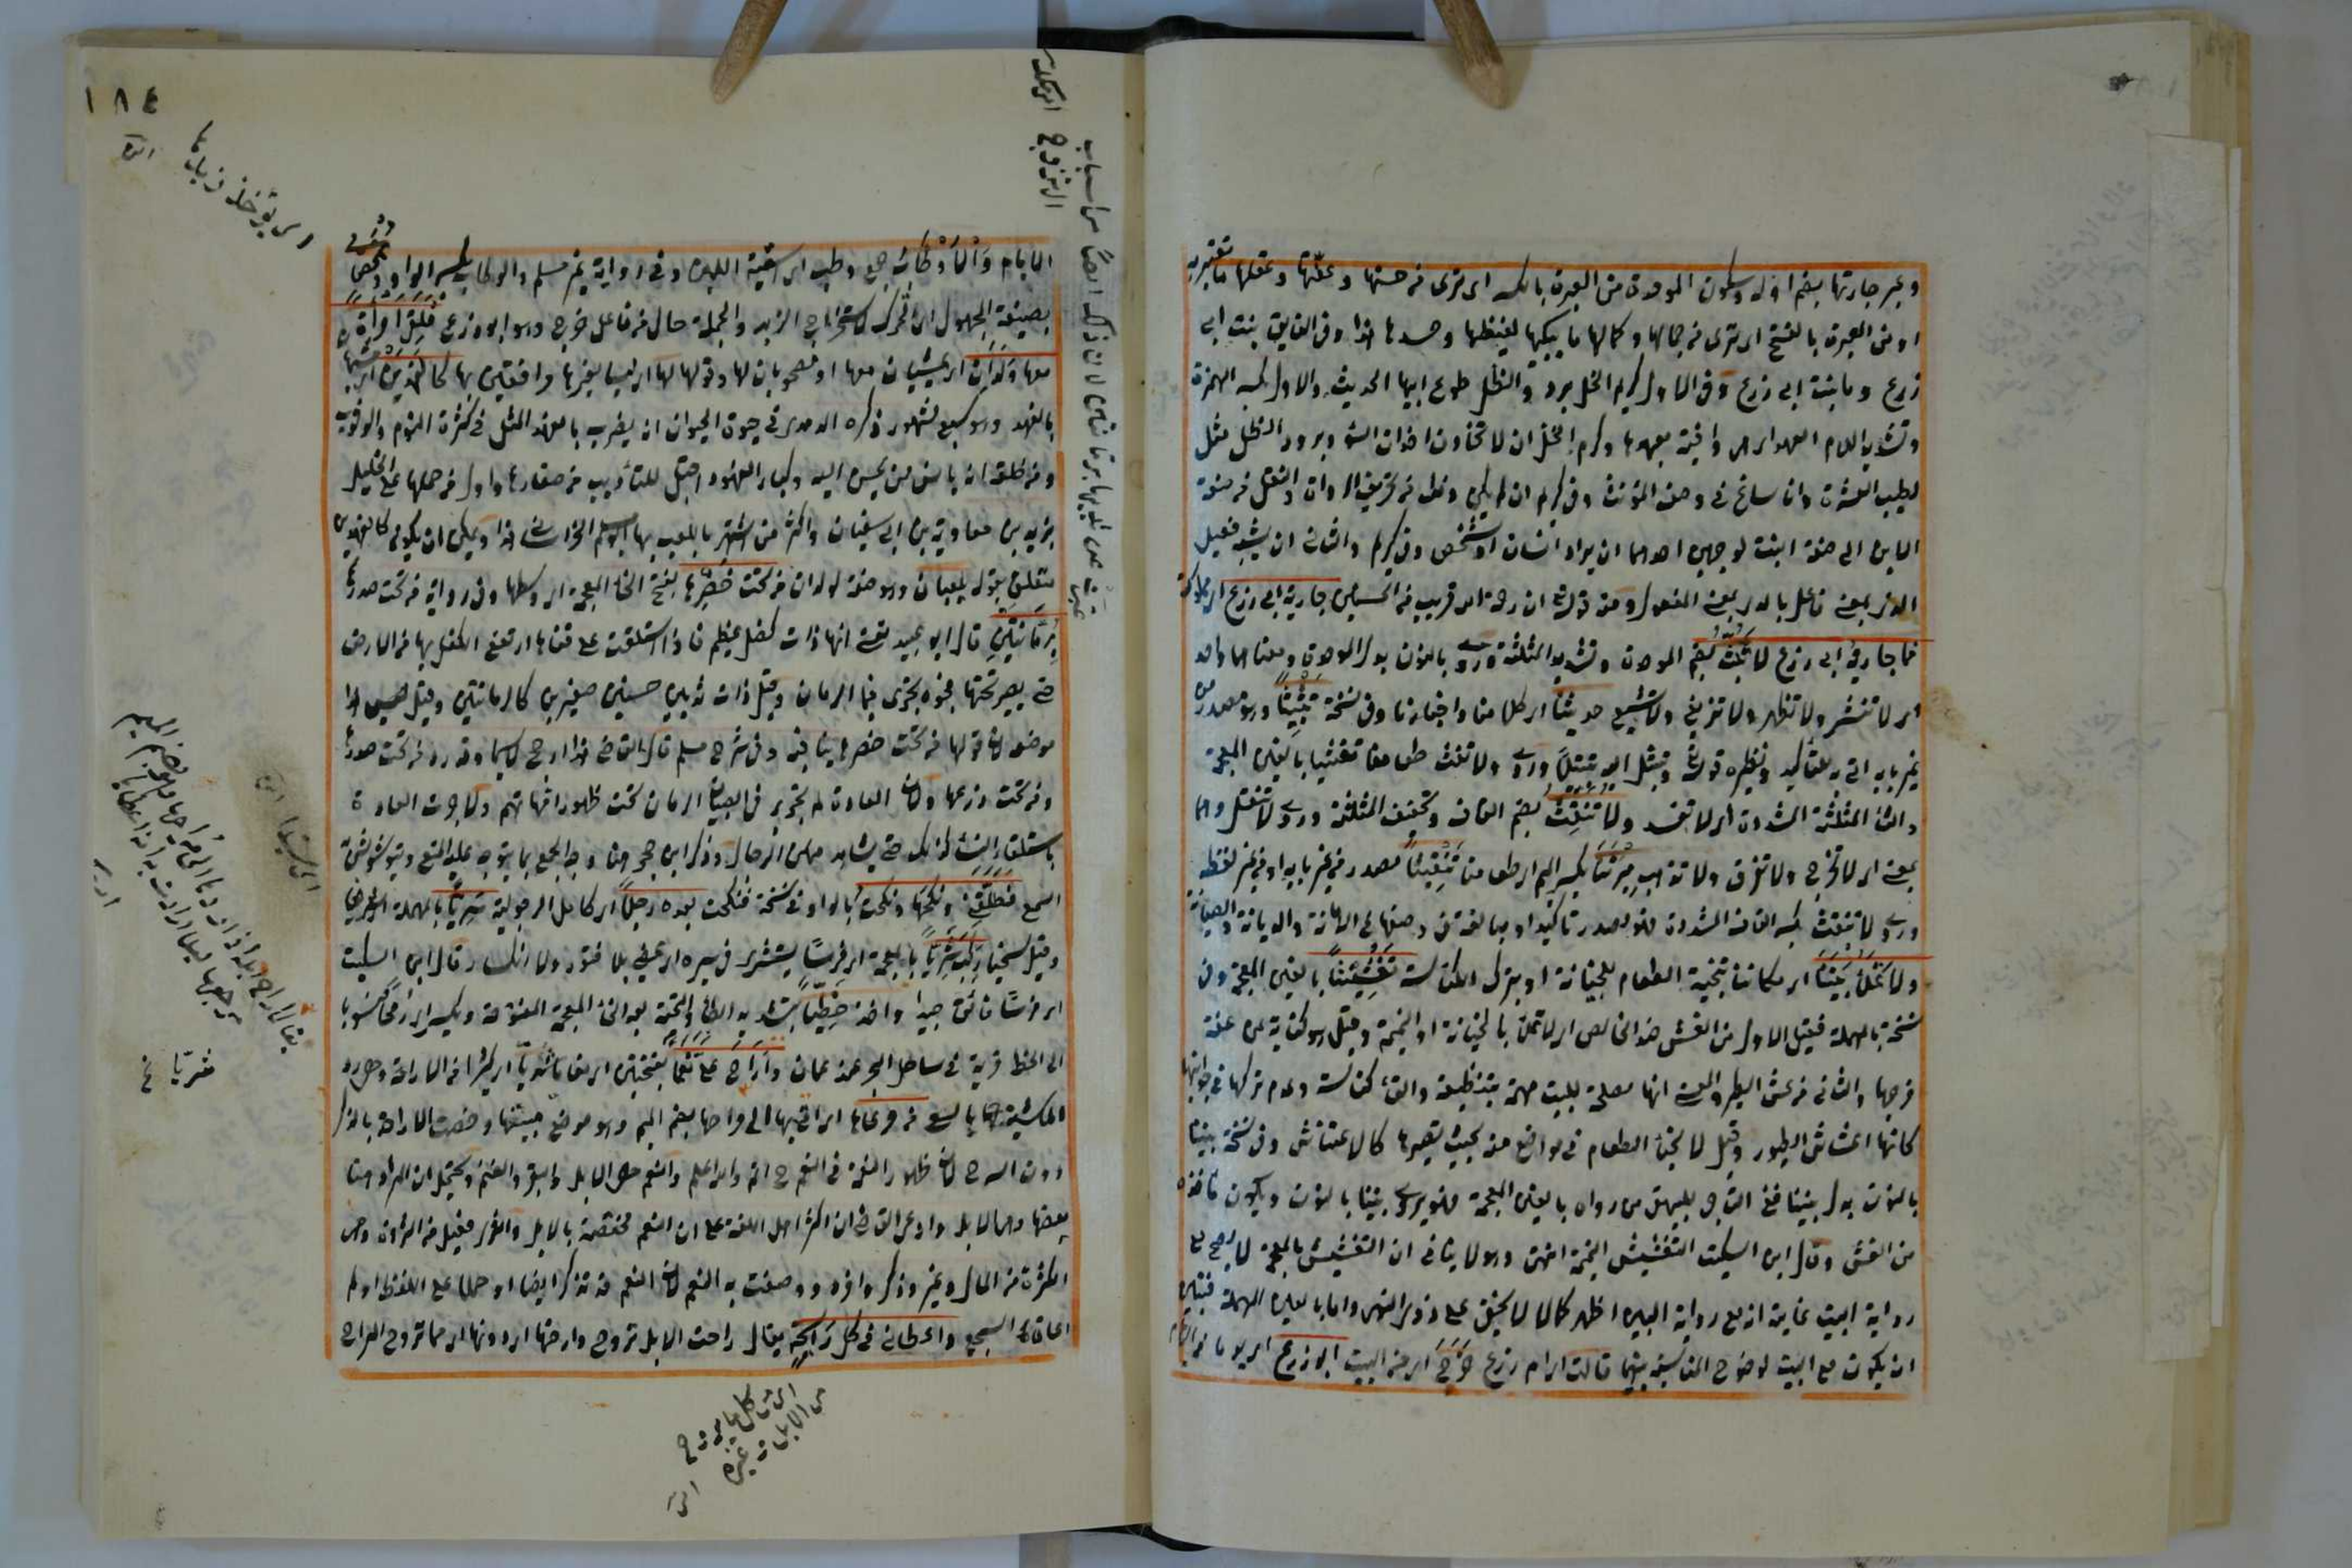 وعبر جارتها بضم اوله وسكون الموحدة من العبرة بالكسر اى ترى من حسنها وعفتها وعقلها ما تعتبر به
او من العبرة بالفتح اى ترى من جمالها وكمالها ما يبكيها لغيظها وحسدها هذا وفى الفايق بنت ابى
زرع وما بنت ابى زرع وفى الال كريم الخل برود الظل طوع ابيها الحديث والاول بكسر الهمزة
وتشديد اللام العهد اى هى وافية بعهدها وكرم الخل ان لا تخادن اخدان السوء وبرود الظل مثل
لطيب العشرة وان ساغ فى وصف المؤنث وفى كريم ان لم يكن من تحريف الرواة والنقل من صفة
الابن الى صفة البنت لوجهين احدهما ان يراد انسان او شخص وفى كريم والثانى ان يشبه فعيل
الذى بمعنى فاعل بالذى بمعنى المفعول ومنه قوله تعالى ان رحمة الله قريب من المحسنين جارية ابى زرع اى مملوكته
فما جارية ابى زرع لا تبث بضم الموحدة وتشديد المثلثة وروى بالنون بدل الموحدة ومعناهما واحد
اى لا تنشر ولا تظهر ولا تذيع ولا تشيع حديثنا اى كلامنا واخبارنا وفى نسخة تبثيثا وهو مصدر من
غير بابه اتى به للتأكيد ونظيره قوله تعالى وتبتل اليه تبتيلا وروى ولا تغث طعامنا تغثيثا بالغين المعجمة
والثاء المثلثة المشددة اى لا تفسد ولا تنقث بضم القاف وتخفيف المثلثة وروى لا تنقل وهما
بمعنى اى لا تخرج ولا تفرق ولا تذهب ميرتنا بكسر الميم اى طعامنا تنقيثا مصدر من غير بابه او من غير لفظه
وروى لا تنقث بكسر القاف المشددة فهو مصدر تأكيدا ومبالغة فى وصفها على الامانة والديانة والصيانة
ولا تملأ بيتنا اى مكاننا بتخبية الطعام للخيانة او بترك الكناسة تغشيشا بالغين المعجمة وفى
نسخة بالمهملة فقيل الاول من الغش ضد الخالص اى لا تملأ بالخيانة او النميمة وقيل هو كناية عن عفة
فرجها والثانى من عش الطير والمعنى انها مصلحة للبيت مهتمة بتنظيفه والقاء كناسته وعدم تركها فى جوانبها
كانها اعشاش الطيور وقيل لا تخبأ الطعام فى مواضع منه بحيث تصيرها كالاعشاش وفى نسخة بيننا
بالنون بدل بيتنا ففى التاج للبيهقى من رواه بالغين المعجمة فهو يروى بيننا بالنون ويكون مأخذه
من الغش وقال ابن السكيت التغشيش النميمة انتهى وهو لا ينافى ان التغشيش بالمعجمة لا يصح مع
رواية البيت غايته انه مع رواية البين اظهر كما لا يخفى على ذوى النهى واما بالعين المهملة فيتعين
ان يكون مع البيت لوضوح المناسبة بينهما قالت اى ام زرع خرج اى من البيت ابو زرع اى يوما من الايام
١٨٤
الايام والاوطاب جمع وطب اى اسقية اللبن وفى رواية غير مسلم والوطاب بكسر الواو تمخض
بصيغة المجهول اى تحرك لاستخراج الزبد والجملة حال من فاعل خرج وهو ابو زرع فلقى امرأة
معها ولدان اى يمشيان معها او مصحوبان لها وقولها لها اى ليسا لغيرها مرافقين بها كالفهدين اى مشبهان
بالفهد وهو سبع مشهور ذكره الدميرى فى حيوة الحيوان ان يضرب بالفهد المثل فى كثرة النوم والوثوب
ومن خلقه انه يأنس لمن يحسن اليه وكبار الفهود اقبل للتأديب من صغارها واول من حملها على الخيل
يزيد بن معاوية بن ابى سفيان واكثر من اشتهر باللعب بها ابو مسلم الخراسانى هذا ويمكن ان يكون كالفهدين
متعلق بقوله يلعبان وهو صفة لولدان من تحت خصرها بفتح الخاء المعجمة اى وسطها وفى رواية من تحت صدرها
برمانتين قال ابو عبيد يعنى انها ذات كفل عظيم فاذا استلقت على قفاها ارتفع الكفل بها من الارض
حتى يصير تحتها فجوة يجرى فيها الرمان وقيل ذات ثديين حسنين صغيرين كالرمانتين وقيل ليس هذا
موضعه لان قولها من تحت خصرها ينافيه وفى شرح مسلم قال القاضى هذا ارجح لاسيما وقد روى من تحت صدرها
ومن تحت درعها ولان العادة لم تجر برمى الصبيان الرمان تحت ظهور امهاتهم ولا جرت العادة
باستلقاء النساء كذلك حتى يشاهد منهن الرجال وذكر ابن حجر هنا وجه الجمع بما يتوجه عليه المنع ويشوش
السمع فطلقنى ونكحها ونكحت بالواو وفى نسخة فنكحت بعده رجلا اى كامل الرجولية سريا بالمهملة اى شريفا
وقيل سخيا ركب شريا بالمعجمة اى فرسا يستشرى فى سيره اى يمضى بلا فتور ولا انكسار وقال ابن السكيت
اى فرسا فائقا جيدا واخذ خطيا بتشديد الطاء والتحتية بعد الخاء المعجمة المفتوحة ويكسر اى رمحا منسوبا
الى الخط قرية فى ساحل البحر عند عمان واراح على نعما بفتحتين اى انعاما ثريا اى كثيرا من الاراحة وهى رد
الماشية بالعشى من مرعاها اى اتى بها الى مراحها بضم الميم وهو موضع مبيتها وخصت الاراحة بالذكر
دون السرح لان ظهور النعمة فى النعم ح اتم والله اعلم والنعم هى الابل والبقر والغنم ويحتمل ان المراد هنا
بعضها وهى الابل وادعى القاضى ان اكثر اهل اللغة على ان النعم مختصة بالابل والثرى فعيل من الثروة وهى
الكثرة من المال وغيره وذكر وافرده ووصفت به النعم لان النعم قد تذكر ايضا او حملا على اللفظ او لمراعاة
السجع واعطانى من كل رائحة يقال راحت الابل تروح وارحتها اى رددتها اى مما تروح المراح
اى من كل ما يروح
من الابل وغيره